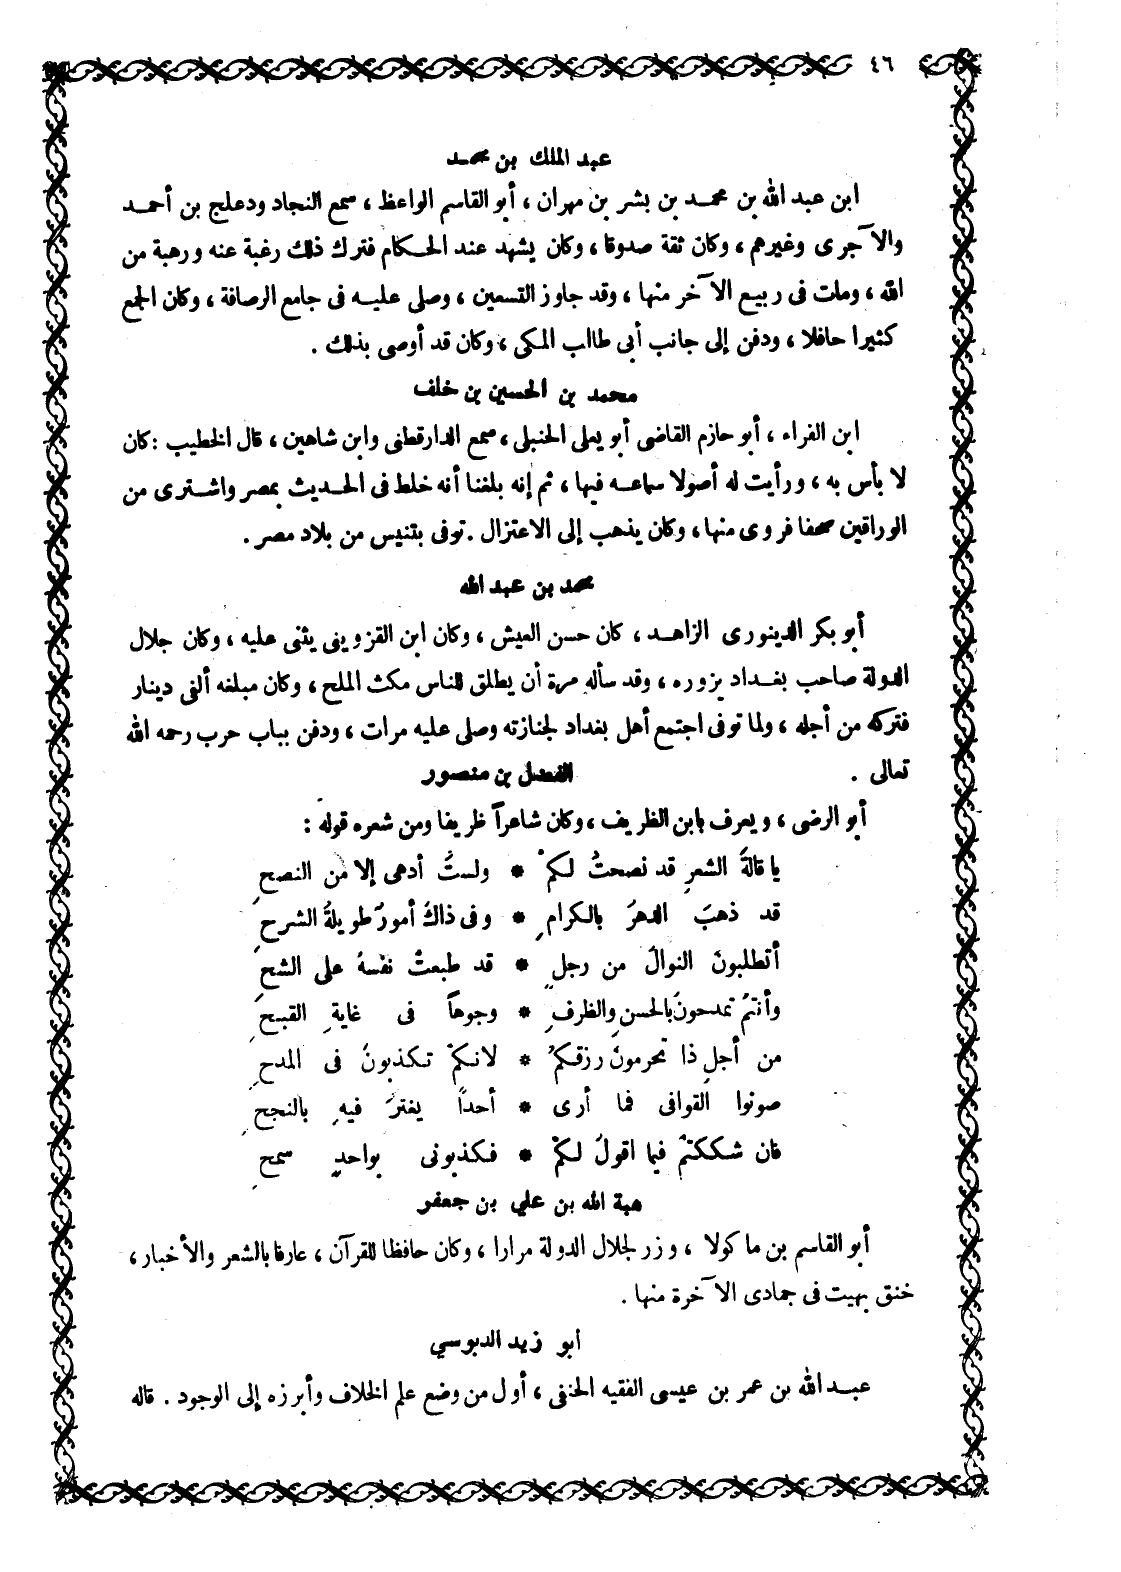 ٤٦
عبد الملك بن محمد
ابن عبد الله بن محمد بن بشر بن مهران ، أبو القاسم الواعظ ، سمع النجاد ودعلج بن أحمد
والآجرى وغيرهم ، وكان ثقة صدوقا ، وكان يشهد عند الحكام فترك ذلك رغبة عنه ورهبة من
الله ، ومات فى ربيع الآخر منها ، وقد جاوز التسعين ، وصلى عليه فى جامع الرصافة ، وكان الجمع
كثيرا حافلا ، ودفن إلى جانب أبى طالب المكى ، وكان قد أوصى بذلك .
محمد بن الحسين بن خلف
ابن الفراء ، أبو حازم القاضى أبو يعلى الحنبلى ، سمع الدارقطنى وابن شاهين ، قال الخطيب : كان
لا بأس به ، ورأيت له أصولا سماعه فيها ، ثم إنه بلغنا أنه خلط فى الحديث بمصر واشترى من
الوراقين صحفا فروى منها ، وكان يذهب إلى الاعتزال . توفى بتنيس من بلاد مصر .
محمد بن عبد الله
أبو بكر الدينورى الزاهد ، كان حسن العيش ، وكان ابن القزوينى يثنى عليه ، وكان جلال
الدولة صاحب بغداد يزوره ، وقد سأله مرة أن يطلق للناس مكث الملح ، وكان مبلغه ألفى دينار
فتركه من أجله ، ولما توفى اجتمع أهل بغداد لجنازته وصلى عليه مرات ، ودفن بباب حرب رحمه الله
تعالى .
الفضل بن منصور
أبو الرضى ، ويعرف بابن الظريف ، وكان شاعراً ظريفا ومن شعره قوله :
يا قالةَ الشعرِ قد نصحتُ لكمْ * ولستُ أدهى إلا من النصحِ
قد ذهبَ الدهرُ بالكرامِ * وفى ذاكَ أمورٌ طويلةُ الشرحِ
أتطلبونَ النوالَ من رجلٍ * قد طبعتْ نفسهُ على الشحِ
وأنتمُ تمدحونَ بالحسنِ والظرفِ * وجوهاً فى غايةِ القبحِ
من أجلِ ذا تحرمونَ رزقكمُ * لانكمْ تكذبونَ فى المدحِ
صونوا القوافى فما أرى * أحداً يغترُ فيهِ بالنجحِ
فان شككتمْ فيما اقولُ لكمْ * فكذبونى بواحدٍ سمحِ
هبة الله بن علي بن جعفر
أبو القاسم بن ماكولا ، وزر لجلال الدولة مرارا ، وكان حافظا للقرآن ، عارفا بالشعر والأخبار ،
خنق بهيت فى جمادى الآخرة منها .
أبو زيد الدبوسي
عبد الله بن عمر بن عيسى الفقيه الحنفى ، أول من وضع علم الخلاف وأبرزه إلى الوجود . قاله